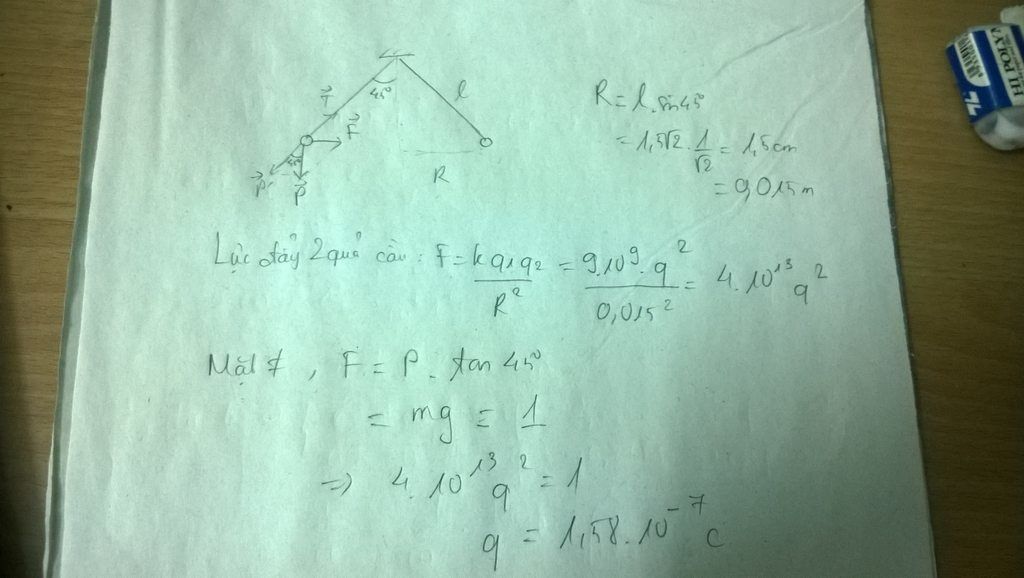 45°
l
T
F
R
45°
P'
P
R = l.sin45°
= 1,5√2 . 1/√2 = 1,5cm
= 0,015m
Lực đẩy 2 quả cầu : F = kq₁q₂/R² = 9.10⁹.q²/0,015² = 4.10¹³q²
Mặt ≠, F = P. tan 45°
= mg = 1
=> 4.10¹³q² = 1
q = 1,58.10⁻⁷ C
HI-POLYM